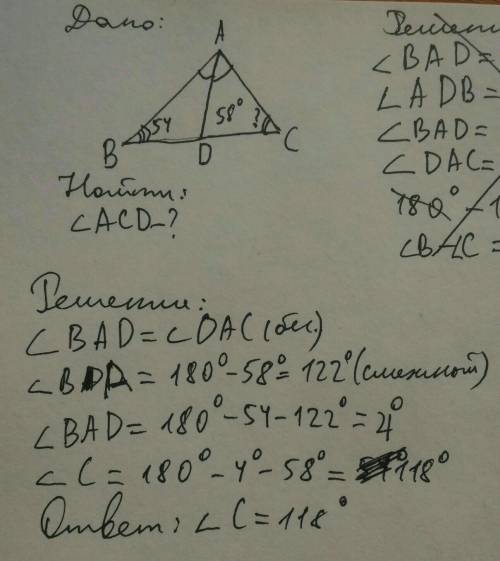 Дано:
A
54
58°
?
B
D
C
Найти:
∠ACD-?
Решение
∠BAD=
∠ADB=
∠BAD=
∠DAC=
180°-1
Решение:
∠BAD=∠DAC(бис.)
∠BDA=180°-58°=122°(смежный)
∠BAD=180°-54-122°=4°
∠C=180°-4°-58°=118°
Ответ: ∠C=118°